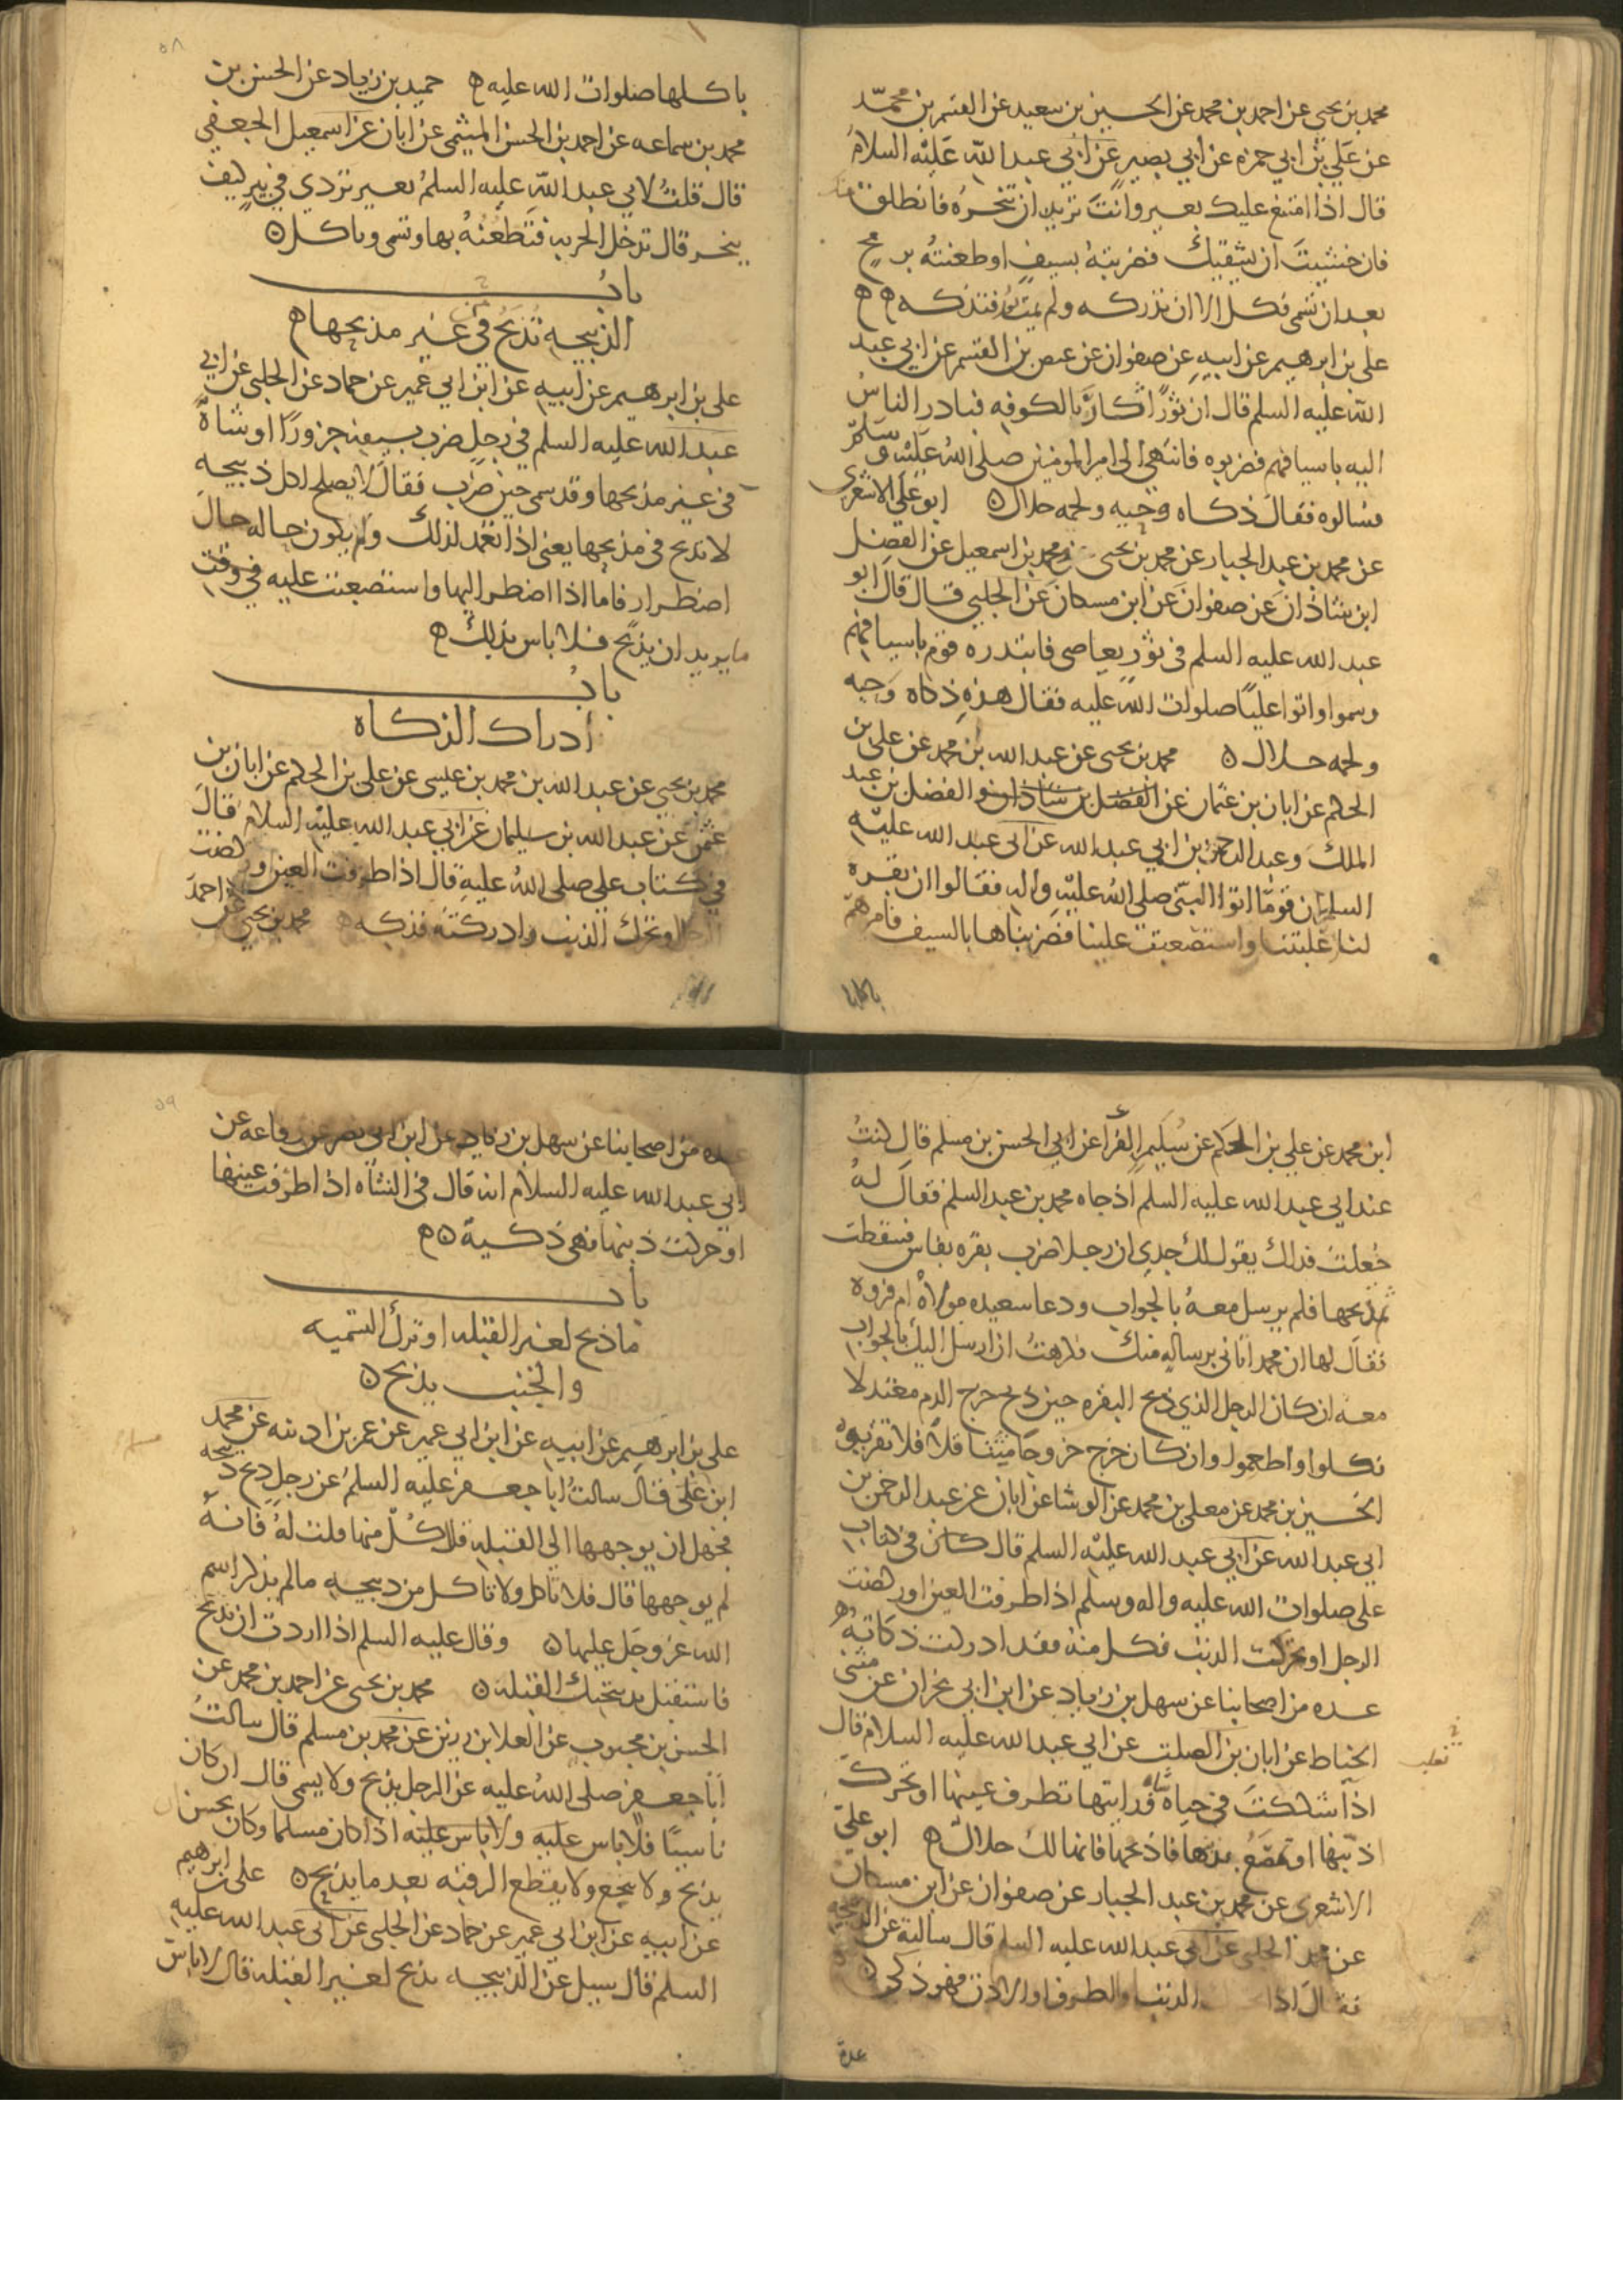 محمد بن يحيى عن احمد بن محمد عن الحسين بن سعيد عن القسم بن محمد
عن علي بن ابي حمزه عن ابي بصير عن ابي عبد الله عليه السلام
قال اذا امتنع عليك بعير وانت تريد ان تنحره فانطلق منك
فان خشيت ان يسبقك فضربته بسيف او طعنته برمح
بعد ان تسمى فكل الا ان تدركه ولم يمت بعد فذكه
علي بن ابرهيم عن ابيه عن صفوان عن عيص بن القسم عن ابي عبد
الله عليه السلم قال ان ثورًا ثار بالكوفه فبادر الناس
اليه باسيافهم فضربوه فانتهى الى امير المومنين صلى الله عليه وسلم
فسالوه فقال ذكاه وحيه ولحمه حلال ابو علي الاشعرى
عن محمد بن عبد الجبار عن محمد بن يحيى ومحمد بن اسمعيل عن الفضل
ابن شاذان عن صفوان عن ابن مسكان عن الحلبي قال قال ابو
عبد الله عليه السلم فى ثور تعاصى فابتدره قوم باسيافهم
وسموا واتوا عليًا صلوات الله عليه فقال هذه ذكاه وحيه
ولحمه حلال محمد بن يحيى عن عبد الله بن محمد عن على بن
الحكم عن ابان بن عثمان عن الفضل بن شاذان والفضل بن عبد
الملك وعبد الرحمن بن ابي عبد الله عن ابى عبد الله عليه
السلم ان قومًا اتوا النبي صلى الله عليه واله فقالوا ان بقره
لنا غلبتنا واستصعبت علينا فضربناها بالسيف فامرهم
باكلها
٥٨
باكلها صلوات الله عليه حميد بن زياد عن الحسن بن
محمد بن سماعه عن احمد بن الحسن الميثمى عن ابان عن اسمعيل الجعفي
قال قلت لابي عبد الله عليه السلم بعير تردي في بير كيف
ينحر قال تدخل الحربه فتطعنه بها وتسمى وياكل
باب
الذبيحه تذبح فى غير مذبحها
على بن ابرهيم عن ابيه عن ابن ابي عمير عن حماد عن الحلبى عن ابي
عبد الله عليه السلم في رجل ضرب بسيفه جزورًا او شاة
فى غير مذبحها وقد سمى حين ضرب فقال لا يصلح اكل ذبيحه
لا تذبح فى مذبحها يعنى اذا تعمد لذلك ولم يكون حاله حال
اضطرار فاما اذا اضطر اليها واستصعبت عليه في وقت
ما يريد ان يذبح فلا باس بذلك
باب
ادراك الذكاه
محمد بن يحيى عن عبد الله بن محمد بن عيسى عن على بن الحكم عن ابان بن
عثمن عن عبد الله بن سليمان عن ابي عبد الله عليه السلام قال
في كتاب على صلى الله عليه قال اذا طرفت العين او ركضت
الرجل او تحرك الذنب وادركته فذكه محمد بن يحيى عن احمد
ابن
ابن محمد عن علي بن الحكم عن سليم الفرا عن ابي الحسن بن مسلم قال كنت
عند ابي عبد الله عليه السلم اذ جاه محمد بن عبد السلم فقال له
جعلت فداك يقول لك جدي ان رجلا ضرب بقره بفاس فسقطت
ثم ذبحها فلم يرسل معه بالجواب ودعا سعيده مولاه ام فروه
فقال لها ان محمد اتانى برساله منك فكرهت ان ارسل اليك بالجواب
معه ان كان الرجل الذي ذبح البقره حين ذبح خرج الدم معتدلا
فكلوا واطعموا وان كان خرج خروجا متثاقلًا فلا تقربوه
الحسين بن محمد عن معلى بن محمد عن الوشا عن ابان عن عبد الرحمن بن
ابي عبد الله عن ابي عبد الله عليه السلم قال كان فى كتاب
على صلوات الله عليه واله وسلم اذا طرفت العين او ركضت
الرجل او تحركت الذنب فكل منه فقد ادركت ذكاته
عده من اصحابنا عن سهل بن زياد عن ابن ابي نجران عن مثنى
الحناط عن ابان بن الصلت عن ابي عبد الله عليه السلام قال
تغلب
اذا شككت فى حياه شاه ورايتها تطرف عينها او تحرك
اذنيها او تمصع بذنبها فاذبحها فانها لك حلال ابو علي
الاشعرى عن محمد بن عبد الجبار عن صفوان عن ابن مسكان
عن محمد الحلبى عن ابى عبد الله عليه السلم قال سالته عن الذبيحه
فقال اذا الذنب والطرف او الاذن فهو ذكى
عدة
٥٩
عده من اصحابنا عن سهل بن زياد عن ابن ابي نصر عن رفاعه عن
ابي عبد الله عليه السلام انه قال فى الشاه اذا طرفت عينها
او حركت ذنبها فهى ذكية
باب
ما ذبح لغير القبله او ترك التسميه
والجنب يذبح
على بن ابرهيم عن ابيه عن ابن ابي عمير عن عمر بن اذينه عن محمد
ابن على قال سالت ابا جعفر عليه السلم عن رجل ذبح ذبيحه
فجهل ان يوجهها الى القبله قال كل منها قلت له فانه
لم يوجهها قال فلا تاكل ولا تاكل من ذبيحه ما لم يذكر اسم
الله عز وجل عليها وقال عليه السلم اذا اردت ان تذبح
فاستقبل بذبيحتك القبله محمد بن يحيى عن احمد بن محمد عن
الحسن بن محبوب عن العلا بن رزين عن محمد بن مسلم قال سالت
ابا جعفر صلى الله عليه عن الرجل يذبح ولا يسمى قال ان كان
ناسيًا فلا باس عليه ولا باس عليه اذا كان مسلما وكان يحسن
يذبح ولا ينخع ولا يقطع الرقبه بعد ما يذبح على بن ابرهيم
عن ابيه عن ابن ابى عمير عن حماد عن الحلبى عن ابى عبد الله عليه
السلم قال سيل عن الذبيحه يذبح لغير القبله قال لا باس